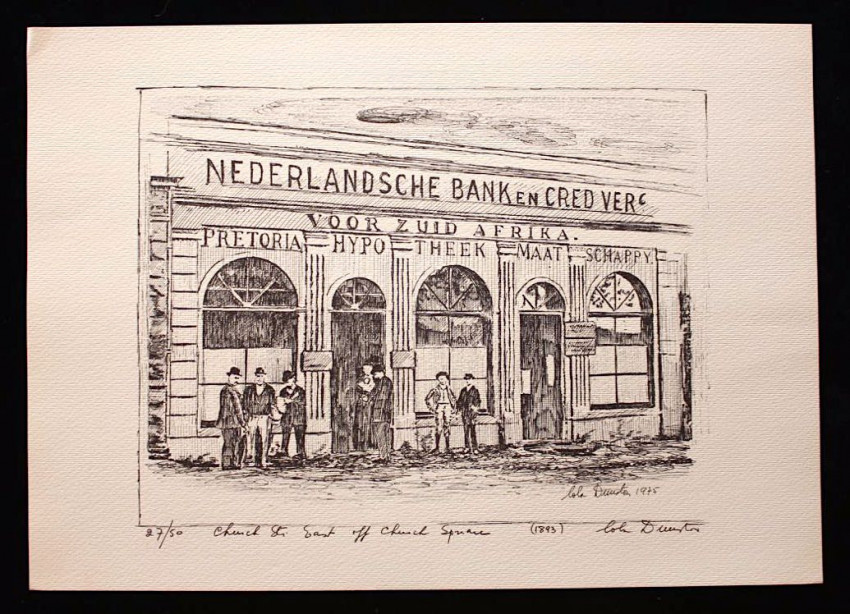 NEDERLANDSCHE BANK EN CRED VERC
VOOR ZUID AFRIKA.
PRETORIA HYPO THEEK MAAT SCHAPPY
Lola Dunston 1975
27/50 Church Str. East off Church Square (1893) Lola Dunston